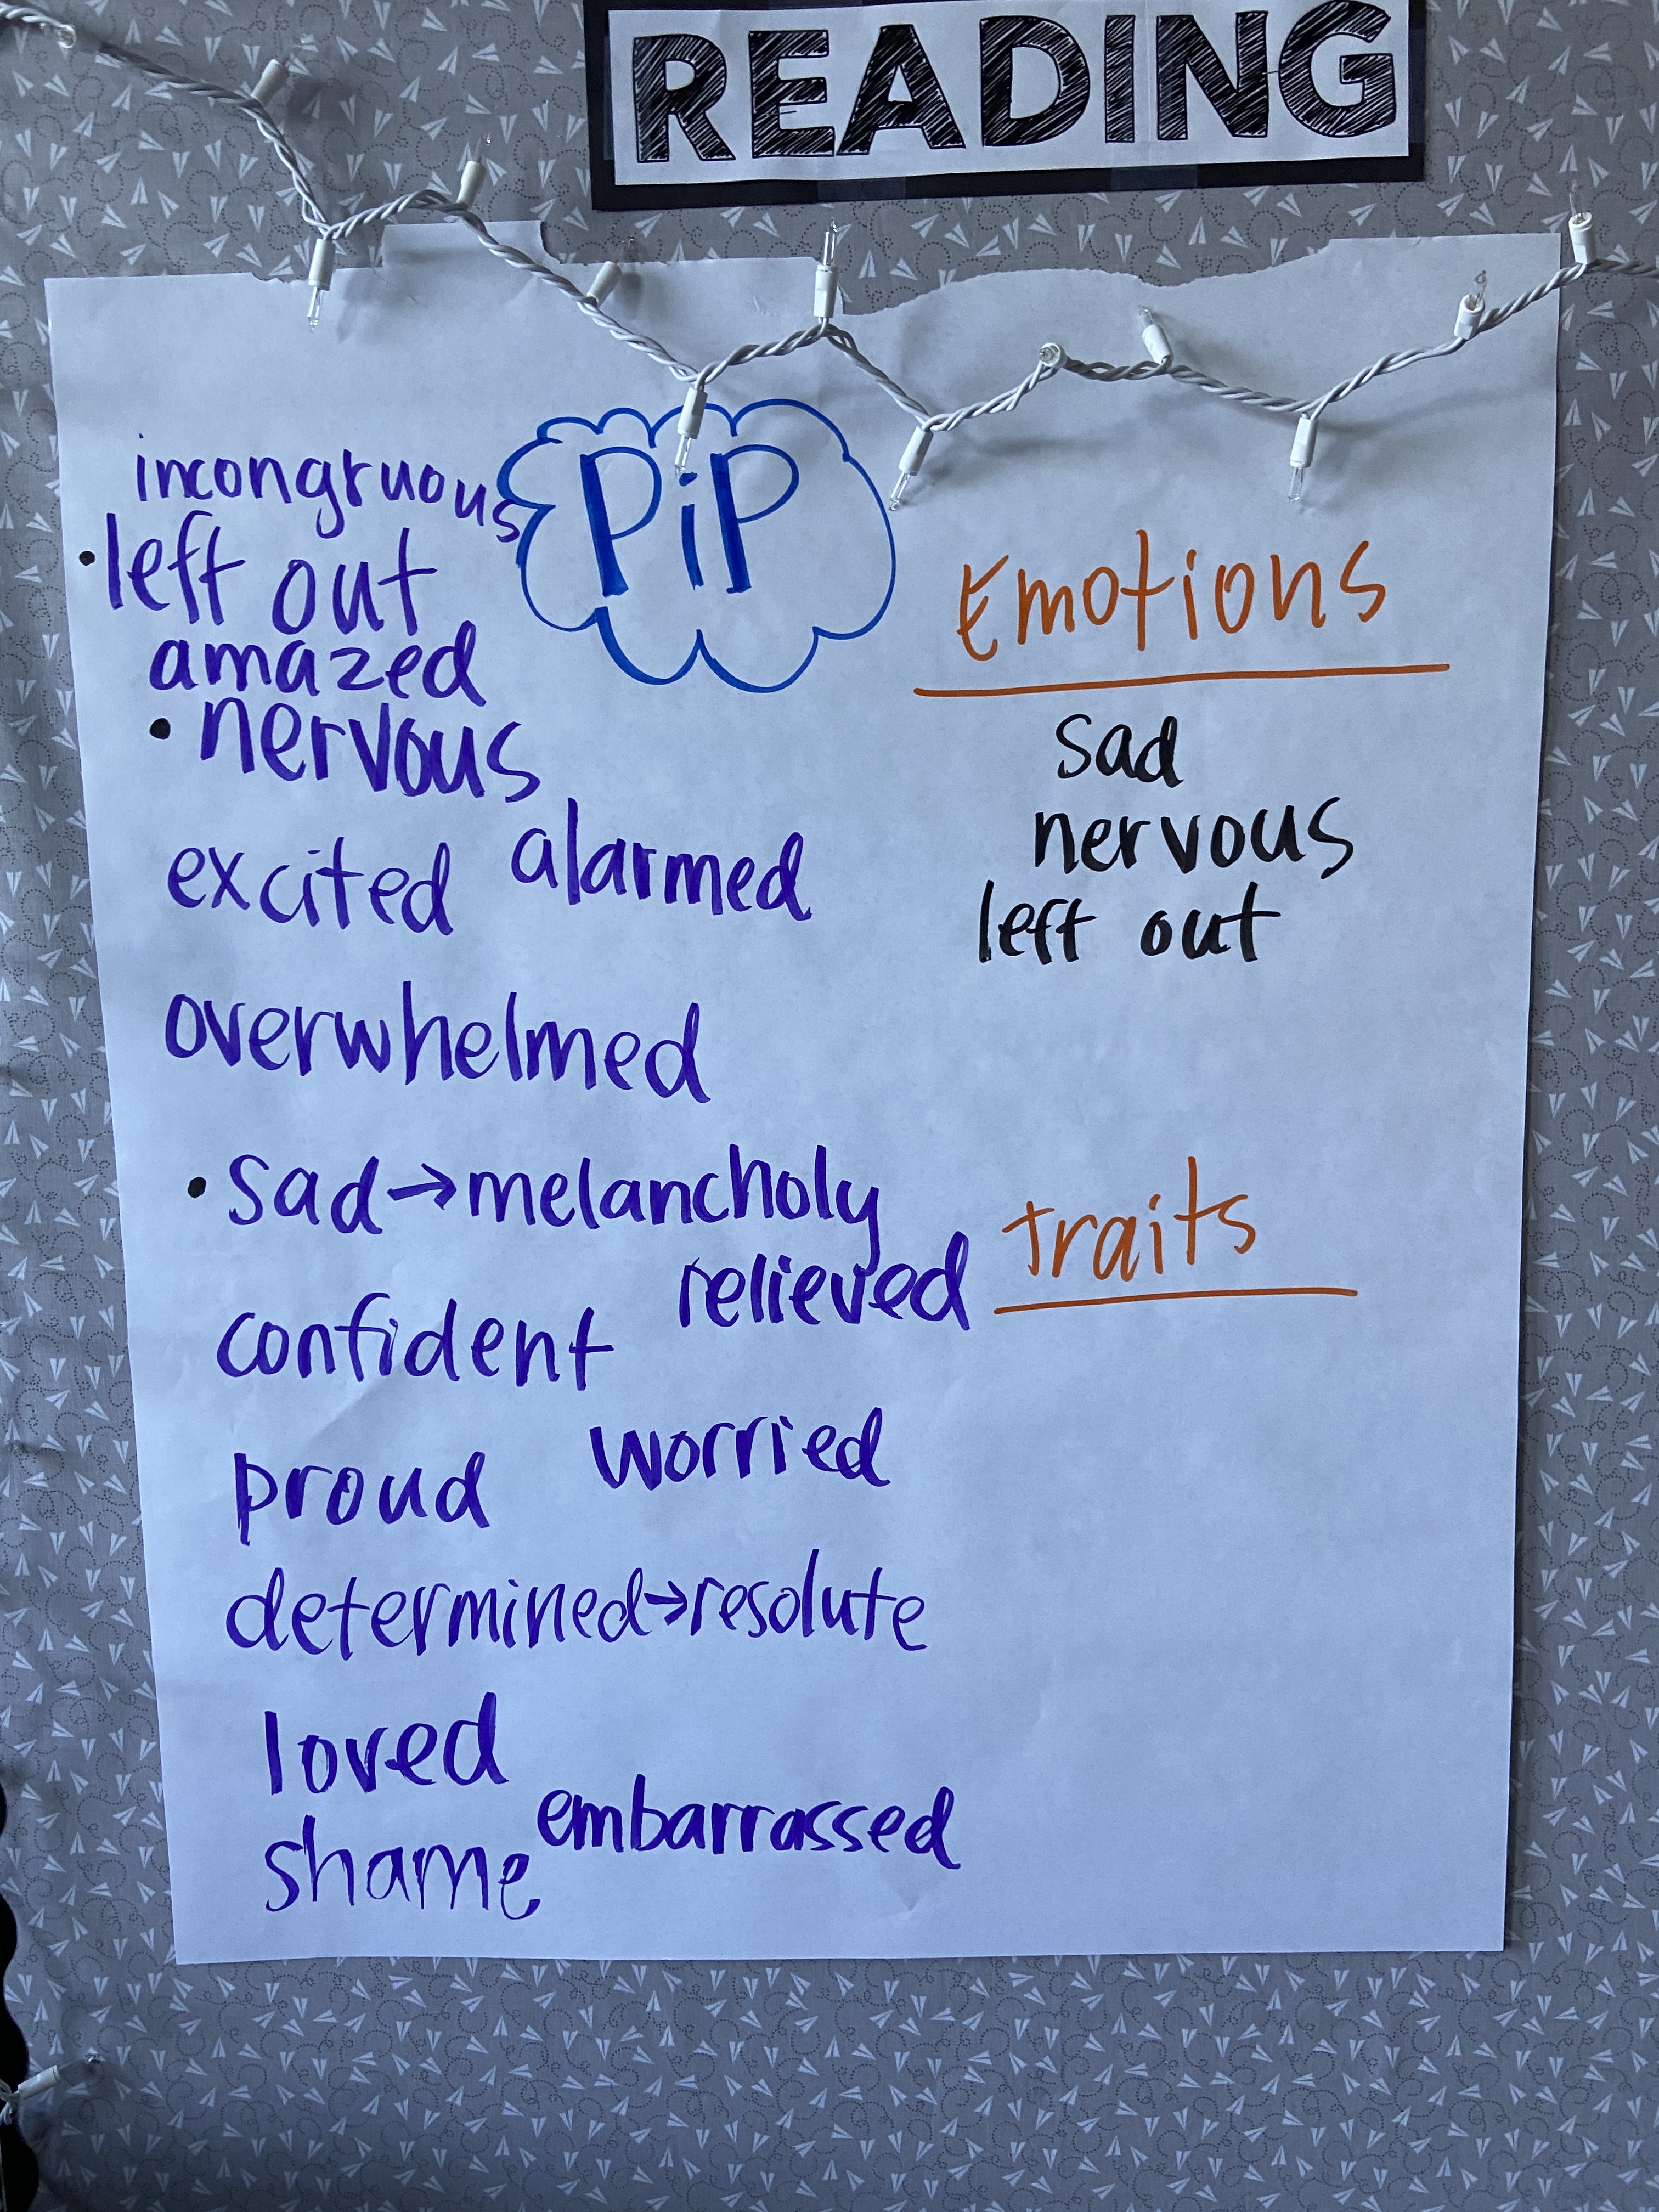 READING
PiP
incongruous
• left out
amazed
• nervous
excited alarmed
overwhelmed
• sad → melancholy
relieved
confident
worried
proud
determined → resolute
loved
embarrassed
shame
Emotions
sad
nervous
left out
traits